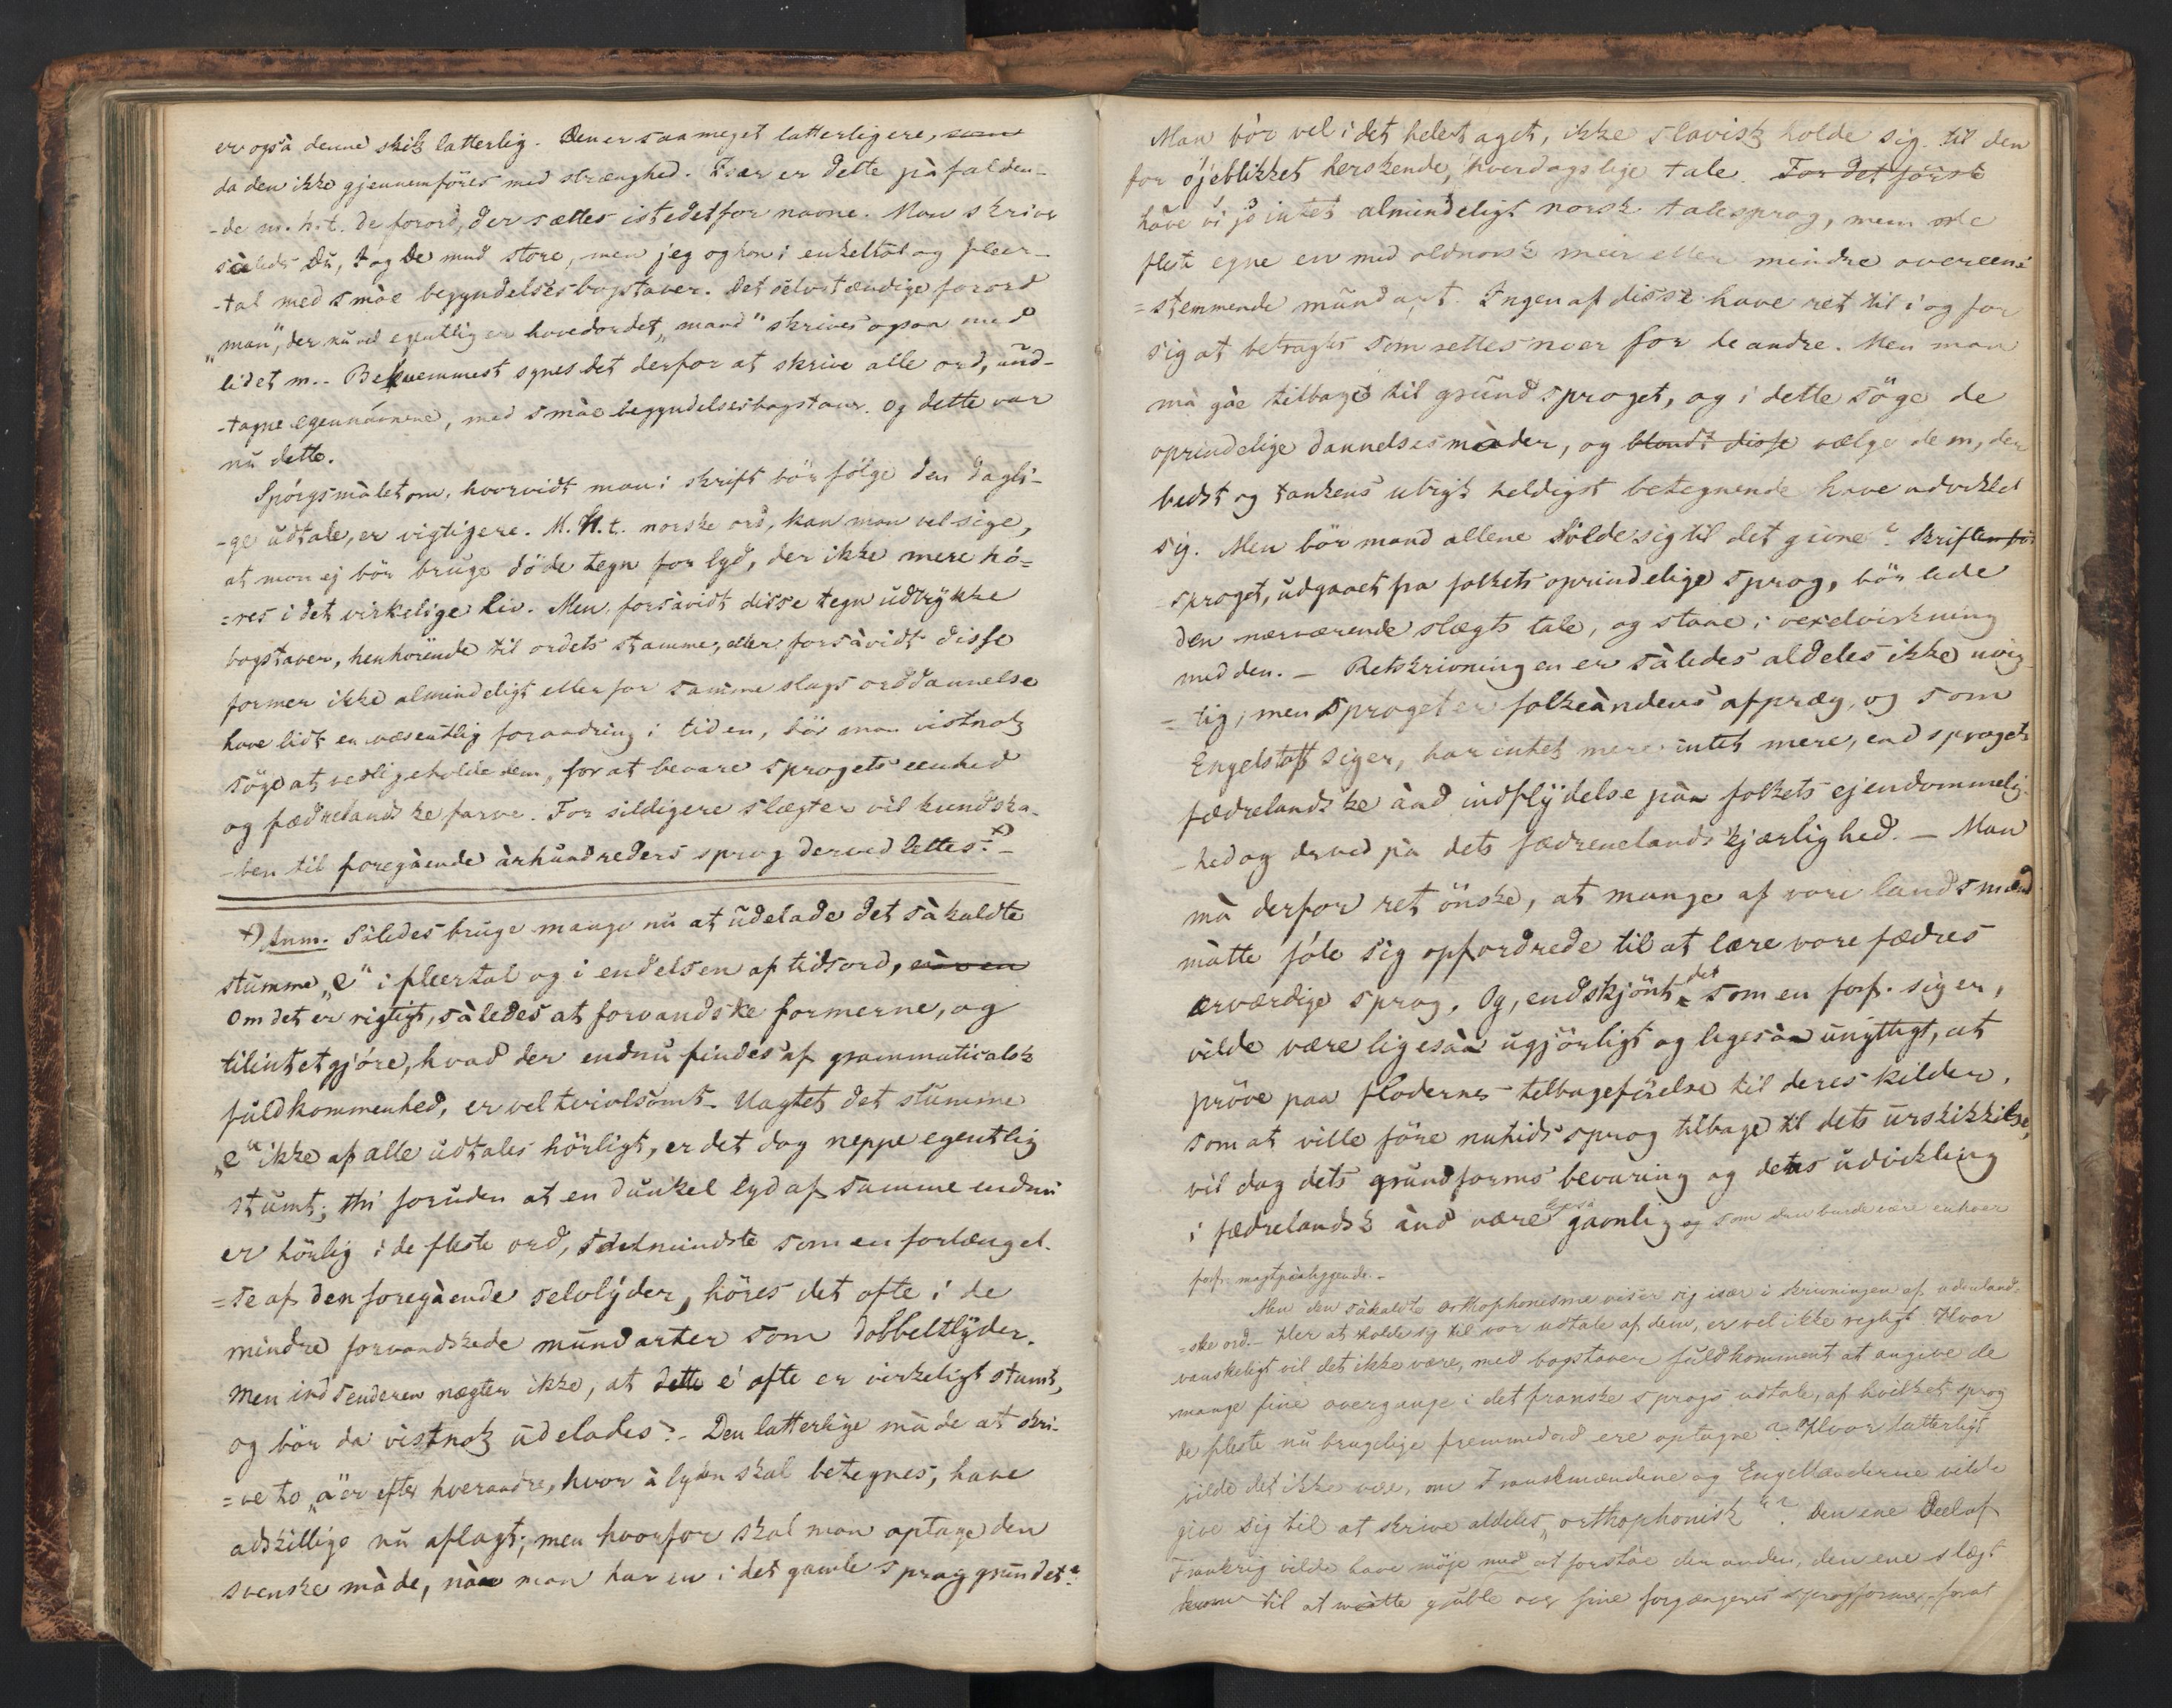 er også denne skik latterlig. Den er saa meget latterligere, som
da den ikke gjennemföres med strænghed. Især er dette på falden-
-de m. h. t. de forord, der sættes istedetfor navne. Man skriver
således Du, I og De med store, men jeg og hon i enkeltal og fleer-
-tal med småe begyndelsesbogstaver. Det selvstændige forord
"man", der nu vel egentlig er hovedordet "mand" skrives ogsaa med
lidet m. - Bekvemmest synes det derfor at skrive alle ord, und-
-tagne egennavnene, med småe begyndelsesbogstaver. Og dette var
nu dette.
Spörgsmålet om, hvorvidt man i skrift bör fölge den dagli-
-ge udtale, er vigtigere. M. H. t. norske ord, kan man vel sige,
at man ej bör bruge döde tegn for lyd, der ikke mere hö=
=res i det virkelige Liv. Men, forsåvidt disse tegn udtrykke
bogstaver, henhörende til ordets stamme, eller forsåvidt disse
former ikke almindeligt eller for samme slags orddannelse
have lidt en væsentlig forandring i tiden, bör man vistnok
söge at vedligeholde dem, for at bevare sprogets eenhed
og fædrelandske farve. For sildigere slægter vil kundska-
-ben til foregående århundreders sprog derved lettes. +) -
+) Anm. Således bruge mange nu at udelade det såkaldte
stumme "e" i fleertal og i endelsen af tidsord,
Om det er rigtigt, således at forvandske formerne, og
tilintetgjöre, hvad der endnu findes af grammaticalsk
fuldkommenhed, er vel tvivlsomt. Uagtet det stumme
"e" ikke af alle udtales hörligt, er det dog neppe egentlig
stumt; thi foruden at en dunkel lyd af samme endnu
er hörlig i de fleste ord, idetmindste som en forlængel-
=se af den foregående selvlyder, höres det ofte i de
mindre forvandskede mundarter som dobbeltlyder.
Men indsenderen nægter ikke, at dette e ofte er virkeligt stumt,
og bör da vistnok udelades. - Den latterlige måde at skri-
=ve to "a"er efter hverandre, hvor å lyden skal betegnes, have
adskillige nu aflagt; men hvorfor skal man optage den
svenske måde, når man har en i det gamle sprog grundet?
Man bör vel i det hele taget, ikke slavisk holde sig til den
for öjeblikket herskende, hverdagslige tale. For det förste
have vi jo intet almindeligt norsk talesprog, men de
fleste egne en med oldnorsk meir eller mindre overeens
=stemmende mundart. Ingen af disse have ret til i og for
sig at betragtes som rettesnoer for de andre. Men man
må gåe tilbage til grundsproget, og i dette söge de
oprindelige dannelsesmåder, og blandt disse vælge dem, der
bedst og tankens udtryk heldigst betegnende have udviklet
sig. Men bör mand allene holde sig til det givne? Skriften for
sproget, udgaaet fra folkets oprindelige sprog, bör lede
den nærværende slægts tale, og staae i vexelvirkning
med den. - Retskrivningen er således aldeles ikke uvig-
=tig; men sproget er folkeåndens afpræg, og som
Engelstoft siger, har intet mere intet mere, end sprogets
fædrelandske ånd indflydelse påa folkets ejendommelig-
-hed og derved på dets fædrenelands kjærlighed. - Man
må derfor ret önske, at mange af vore landsmænd
måtte föle sig opfordrede til at lære vore fædres
ærværdige sprog. Og, endskjönt det som en forf. siger,
vilde være ligesåa ugjörligt og ligesåa unyttigt, at
pröve paa flodernes tilbageförelse til deres kilder,
som at ville före nutids sprog tilbage til dets urskikkelse,
vil dog dets grundforms bevaring og dets udvikling
i fædrelandsk ånd være ligeså gavnlig og som den burde være enhver
forf. magtpåliggende. -
Men den såkaldte orthophonisme viser sig især i skrivningen af udenland-
=ske ord. - Her at holde sig til vor udtale af dem, er vel ikke rigtigt. Hvor
vanskeligt vil det ikke være, med bogstaver fuldkomment at angive de
mange fine overgange i det franske sprogs udtale, af hvilket sprog
de fleste nu brugelige fremmedord ere optagne? Hvor latterligt
vilde det ikke være, om Franskmændene og Engellænderne vilde
give sig til at skrive aldeles "orthophonisk"? Den ene Deel af
Frankrig vilde have möje med at forståe den anden, den ene slægt
komme til at måtte gruble over sine forgængeres sprogformer, forat